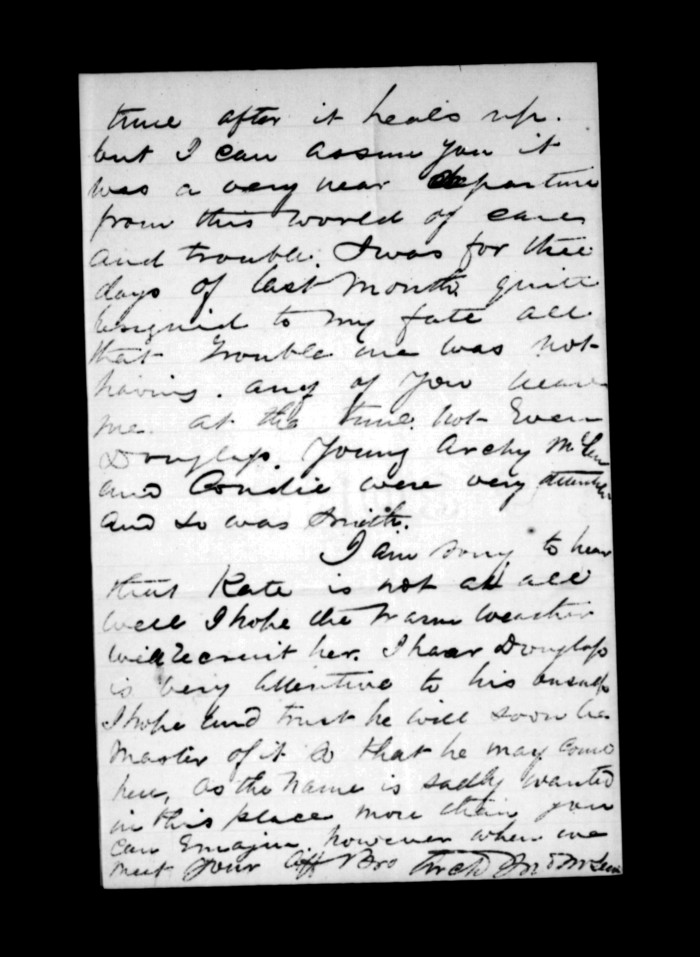 time after it heals up.
but I can assure you it
was a very near departure
from this world of care
and trouble. I was for three
days of last month quite
resigned to my fate all
that trouble me was not
having any of you near
me at the time. not Even
Douglass. Young Archy McLean
and Condie were very attentive
and so was Smith.
I am sorry to hear
that Kate is not at all
well I hope the warm weather
will recruit her. I hear Douglass
is very attentive to his
I hope and trust he will soon be
Master of it so that he may come
here, as the name is sadly wanted
in this place more than you
can Emagin. however when we
meet your Aff Bro Archd McLean